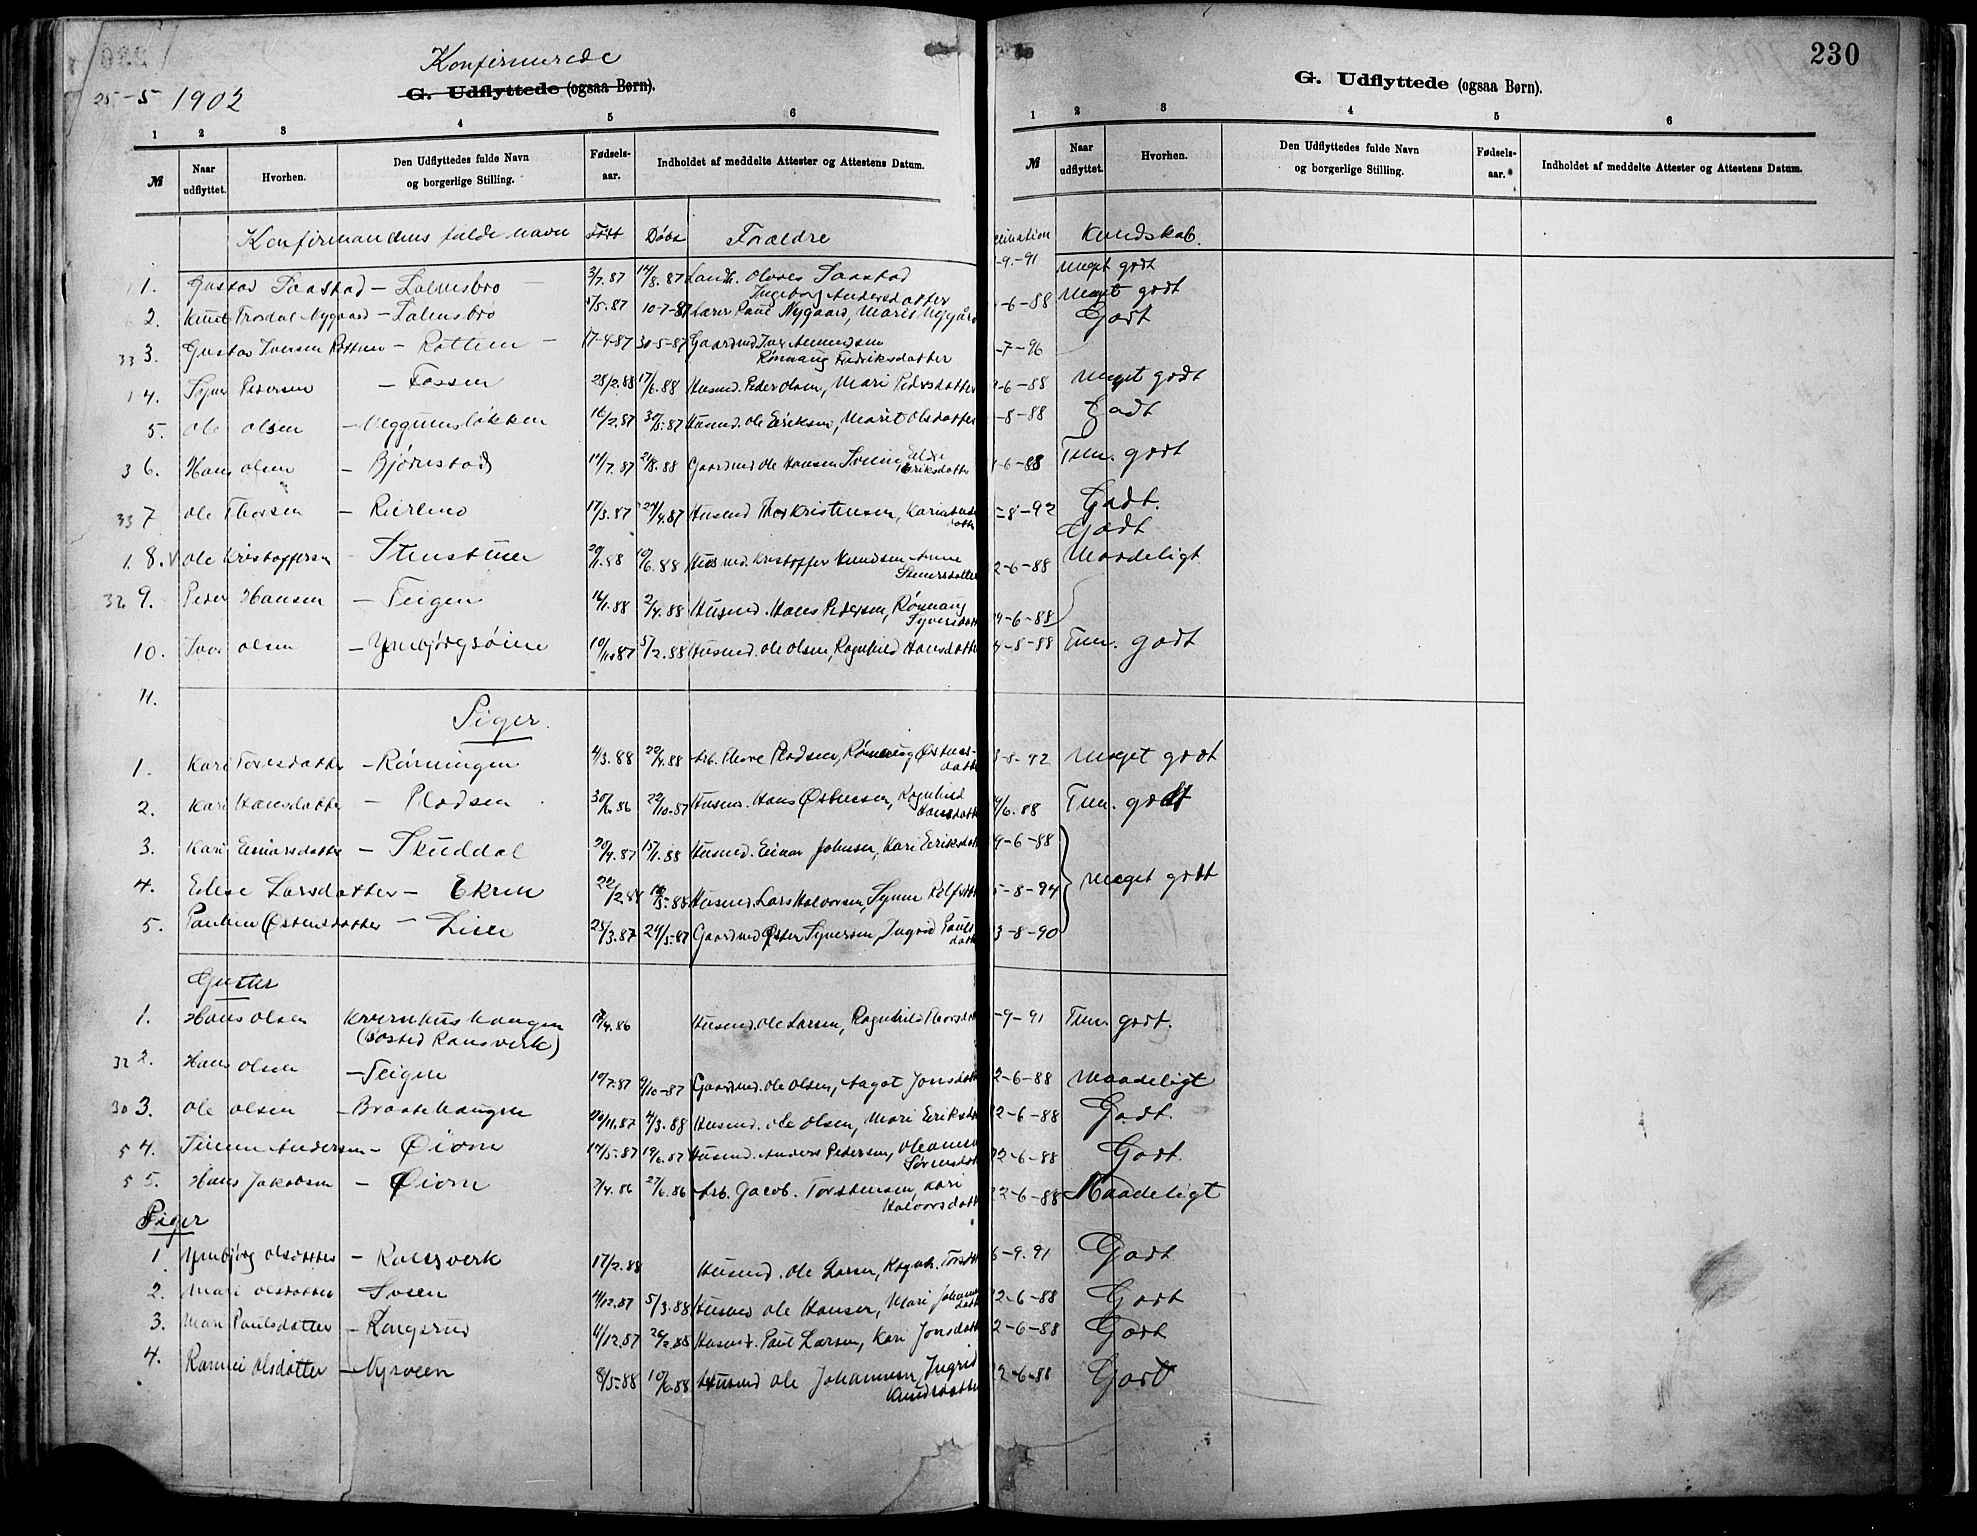 230
Konfirmerede
G. Udflyttede (ogsaa Børn).
25-5 1902
1 2 3 4 5 6
№ Naar udflyttet. Hvorhen. Den Udflyttedes fulde Navn og borgerlige Stilling. Fødsels-aar. Indholdet af meddelte Attester og Attestens Datum.
G. Udflyttede (ogsaa Børn).
1 2 3 4 5 6
№ Naar udflyttet. Hvorhen. Den Udflyttedes fulde Navn og borgerlige Stilling. Fødsels-aar. Indholdet af meddelte Attester og Attestens Datum.
Konfirmandens fulde navn Født Døbt Forældre Kundskab.
1. Gustav Saastad – 3/7.87 14/8.87 Saastad -9.-91 Meget godt
Ingeborg Andersdatter
2. Knut Nygaard – 5/5.87 10-7-87 Lærer Paul Nygaard, -6-88 Meget godt
Godt
33 3. Gustav Iversen – 17-4-87 30-5-87 Gaardmd Iver Amundsen -7-96
Rønnaug Fredriksdatter
4. Pedersen – Fossen 28/2.88 17/6.88 Husmd. Peder Olsen, Mari Pedersdatter -6-88 Meget godt
5. Ole Olsen – Veggumsløkken 16/2.87 Husmd. Ole Eriksen, Marit Olsdatter -8-88 Godt
3 6. Hans Olsen – Bjørnstad 14/7.87 21/8.88 Gaardmd Ole Hansen -6-88 Tem. godt
Eriksdatter
33 7 Ole Thorsen – 17/3.87 24/4.87 Husmd Thor Kristensen, -8-92 Godt.
Godt
1. 8. Ole Kristoffersen – Stenstuen 10/6.88 Husmd. Kristoffer Knudsen Anne 2-6-88 Maadeligt
Steinersdatter
32 9. Peder Hansen – Teigen 16/1.88 2/4.88 Husmd. Hans Pedersen, Rønnaug 9-6-88
Syversdatter
10. Iver Olsen – 10/11.87 5/2.88 Husmd. Ole Olsen, Ragnhild Hansdatter -8-88 Tem. godt
11.
Piger.
1. Kari Toresdatter – Rønningen 4/3.88 22/4.88 Arb. Thore Pladsen, Rønnaug Østens- -8-92 Meget godt
datter
2. Kari Hansdatter – Pladsen 30/6.86 22/10.87 Husmd. Hans Østensen, Ragnhild /6.88 Tem. godt
Hansdatter
3. Kari Einarsdatter – Skuddal 20/4.87 15/1.88 Husmd. Einar Johnsen, Kari Eriksdat 9-6-88
4. Elise Larsdatter – Ekren 22/2.88 Husmd. Lars Halvorsen, 5-8-94 Meget godt
5. Pauline Østensdatter – Lien 25/3.87 29/5-87 Gaardmd Østen Syversen, Ingrid Pauls- 3-8-90
datt
Gutter
1. Hans Olsen Kvernhushaugen 17/4.86 Husmd. Ole Larsen, Ragnhild Thorsdat -9-91 Tem. godt.
(bosted Ransverk)
32 2. Hans Olsen – Teigen 10/7.87 9/10-87 Gaardmd. Ole Olsen, Aagot Jonsdatt 2-6-88 Maadeligt
30 3. Ole Olsen – Braatehaugen 29/11.87 4/3.88 Husmd. Ole Olsen, Mari Eriksda 2-6-88 Godt.
5 4. Andersen – Øiom 17/5.87 19/6.87 Husmd. Anders Pedersen, Oleanna 2-6-88 Godt.
Sørensdat
5 5. Hans Jakobsen – Øiom 7/4.86 27/6.86 Arb. Jacob. Torstensen, Kari 22-6-88 Maadeligt
Halvorsdatt
Piger
1 Ymbjørg Olsdatter – Ransverk 17/2.88 Husmd. Ole Larsen, Ragnh. Torsdat 6-9.91 Godt
2. Mari Olsdatter – Sveen 4/12.87 5/3.88 Husmd Ole Hansen, Mari Johans- 2-6-88 Godt
datt
3. Mari Paulsdatter – Kongsrud 4/12.87 26/2.88 Husmd. Paul Larsen, Kari Jonsdatt 2-6-88 Godt
4. Olsdatter – Nysveen 8/5-88 10/6.88 Husmd Ole Johannesen, Ingrid 2-6-88 Godt
Knudsdatter